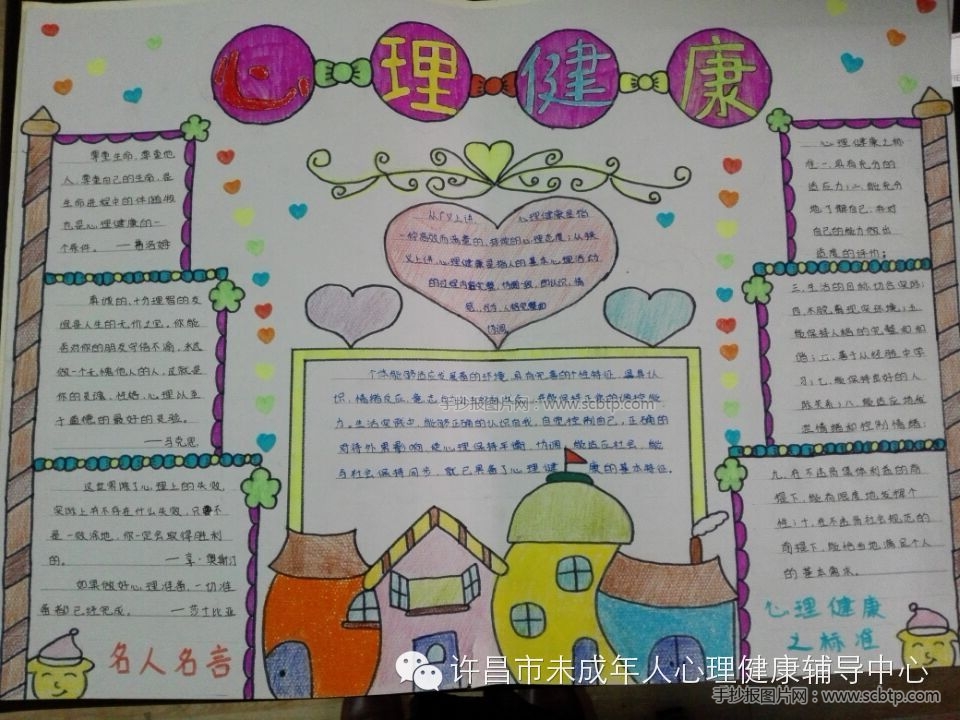 心理健康
尊重生命、尊重他
人、尊重自己的生命,是
生命进程中的伴随物
也是心理健康的一
个条件。——弗洛姆
真诚的、十分理智的友
谊是人生的无价之宝,你能
否对你的朋友守信不渝,永远
做一个无愧他人的人,这就是
你的灵魂、性格、心理以至
于道德的最好的考验。
——马克思
这世界除了心理上的失败,
实际上并不存在什么失败,只要不
是一败涂地,你一定会取得胜利
的。——亨·奥斯汀
如果做好心理准备,一切准
备都已经完成。——莎士比亚
名人名言
从广义上讲 心理健康是指
一种高效而满意的、持续的心理态度;从狭
义上讲,心理健康是指人的基本心理活动
的过程内容完整、协调一致,即认识、情
感、行为、人格完整和
协调
个体能够适应发展着的环境,具有完善的个性特征,且其认
识、情绪反应、意志行为
能力。生活实践中,能够正确的认识自我,自觉控制自己,正确的
对待外界影响,使心理保持平衡协调,能适应社会,能
与社会保持同步,就已具备了心理健康的基本特征。
心理健康之标
准一、具有充分的
适应力;二、能充分
地了解自己,并对
自己的能力做出
适度的评价;
三、生活的目标切合实际;
四、不脱离现实环境;五、
能保持人格的完整和和
谐;六、善于从经验中学
习;七、能保持良好的人
际关系;八、能适当地发
泄情绪和控制情绪;
九、在不违背集体利益的前
提下,能有限度地发挥个
性;十、在不违背社会规范的
前提下,能恰当地满足个人
的基本需求。
心理健康
之标准
手抄报图片网:www.scbtp.com
许昌市未成年人心理健康辅导中心
手抄报图片网:www.scbtp.com